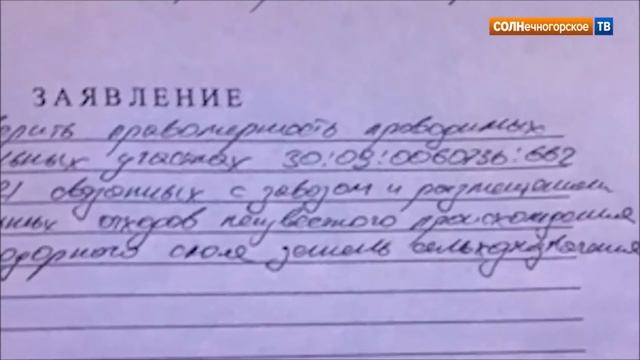 СОЛНечногорское ТВ
ЗАЯВЛЕНИЕ
правомерность проводимых
участках 50:09:0060736:662
связанных с завозом и размещением
отходов неизвестного происхождения
слоя земель сельхозназначения